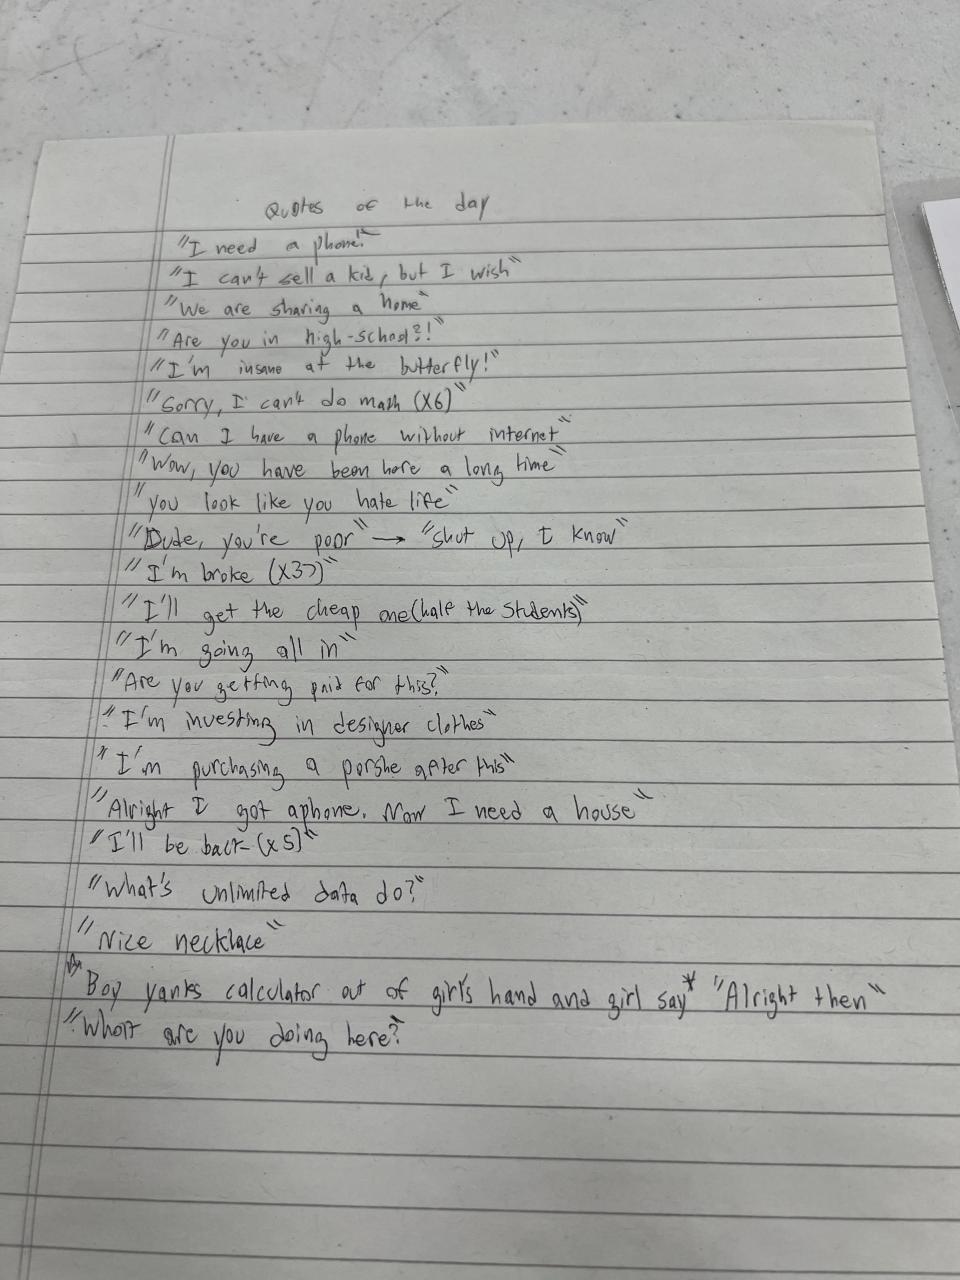 Quotes of the day
"I need a phone!"
"I can't sell a kid, but I wish"
"We are sharing a home"
"Are you in high-school?!"
"I'm insane at the butterfly!"
"Sorry, I can't do math (x6)"
"Can I have a phone without internet"
"Wow, you have been here a long time"
"you look like you hate life"
"Dude, you're poor" → "shut up, I know"
"I'm broke (x37)"
"I'll get the cheap one (half the students)"
"I'm going all in"
"Are you getting paid for this?"
"I'm investing in designer clothes"
"I'm purchasing a porshe after this"
"Alright I got aphone. Now I need a house"
"I'll be back (x5)"
"What's unlimited data do?"
"Nice necklace"
*Boy yanks calculator out of girl's hand and girl say* "Alright then"
"What are you doing here?"